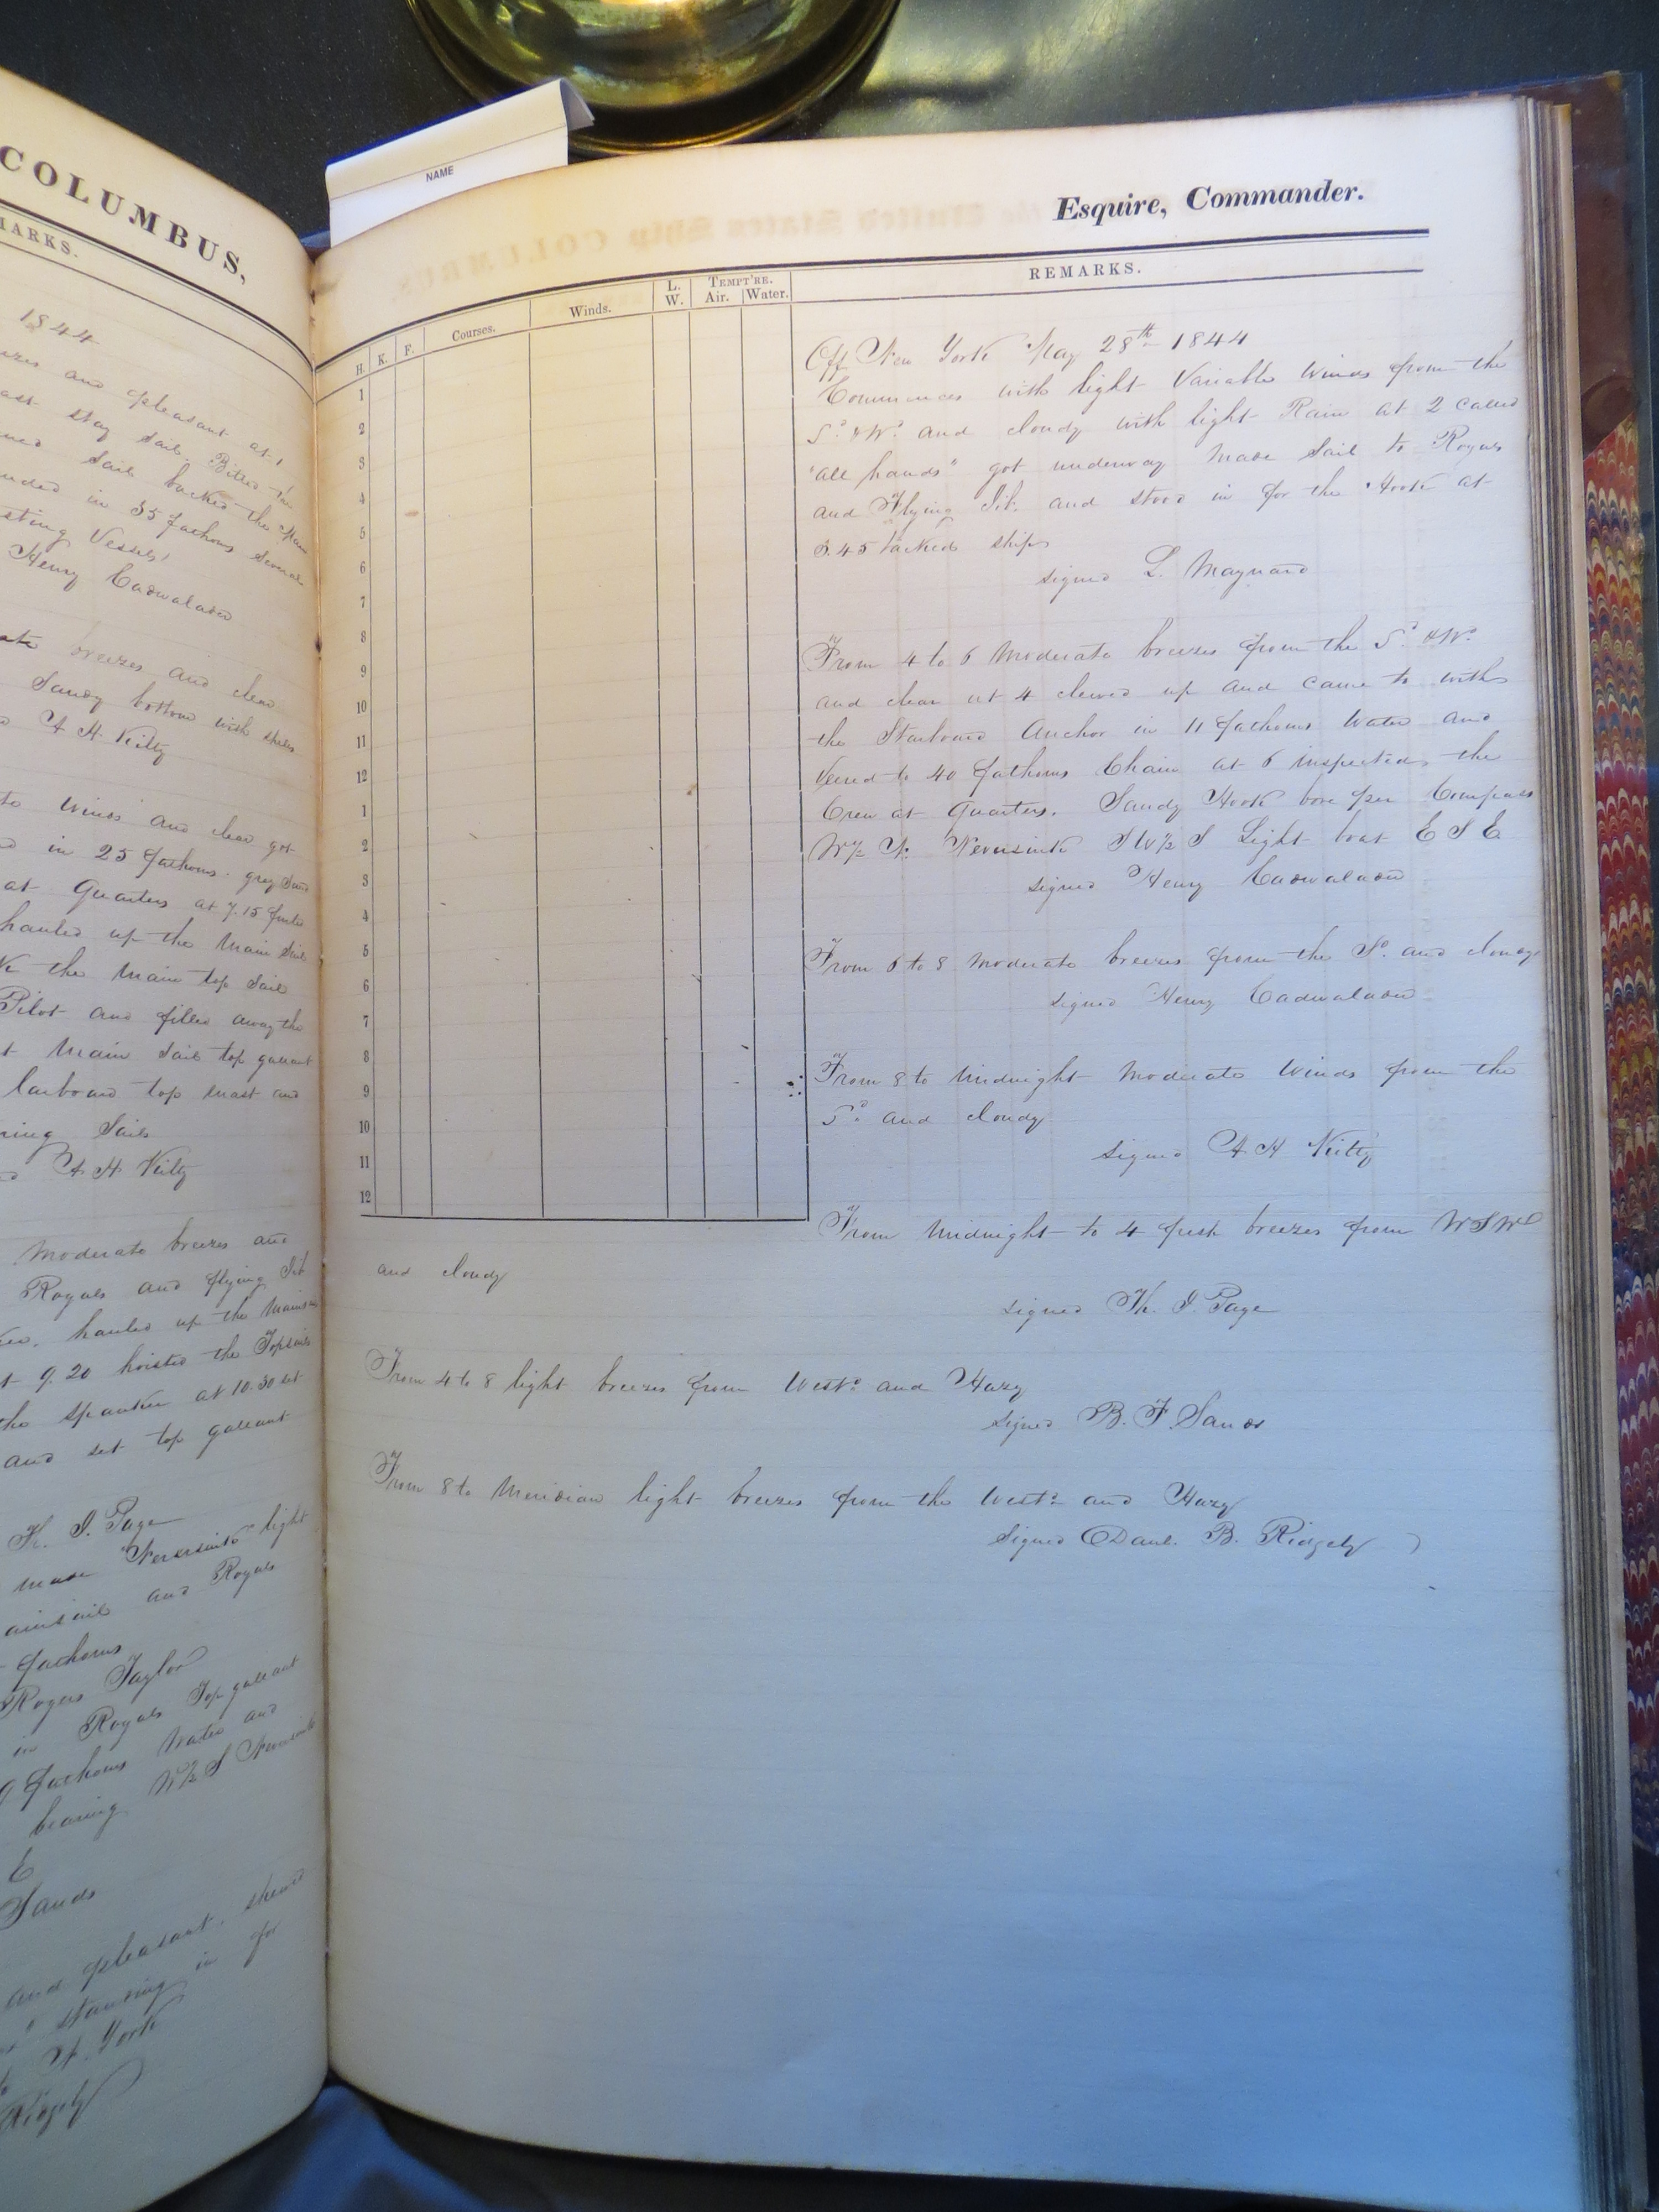 COLUMBUS,
MARKS.
1844
and pleasant at 1
stay sail. Bitted the
sail backed the Main
in 35 fathoms several
Vessels,
Henry Cadwalader
breezes and clear
Sandy bottom with shells
A H Kilty
winds and clear got
in 25 fathoms. grey Sand
at Quarters at 7.15
hauled up the Main Sail
the Main top Sail
Pilot and filled away the
Main Sail top gallant
larboard top mast and
Sails
A H Kilty
Moderate breezes and
Royals and flying Jib
hauled up the Mainsail
9.20 hoisted the Topsails
the spanker at 10.30 set
and set top gallant
Th. J. Page
made "Neversink" light
and Royals
fathoms
Rogers Taylor
in Royals Top gallant
9 fathoms Water and
bearing W½S Neversink
E
Sands
and pleasant.
standing in for
N. York
Ridgely
NAME
Esquire, Commander.
H. K. F. Courses. Winds. L. W. Tempt're. Air. Water. REMARKS.
1
2
3
4
5
6
7
8
9
10
11
12
1
2
3
4
5
6
7
8
9
10
11
12
Off New York May 28th 1844
Commences with light Variable Winds from the
Sd. & Wd. and cloudy with light Rain at 2 called
"all hands" got underway Made Sail to Royals
and Flying Jib. and stood in for the Hook at
3.45 tacked ship
signed L. Maynard
From 4 to 6 Moderate breezes from the Sd. & Wd.
and clear at 4 clewed up and came to with
the Starboard Anchor in 11 fathoms Water and
Veered to 40 fathoms Chain at 6 inspected the
Crew at Quarters. Sandy Hook bore per Compass
W½ N. Neversink SW½ S Light boat E S E
signed Henry Cadwalader
From 6 to 8 Moderate breezes from the Sd. and cloudy
signed Henry Cadwalader
From 8 to Midnight Moderate Winds from the
Sd. and cloudy
signed A H Kilty
From Midnight to 4 fresh breezes from WSWd
and cloudy
signed Th. J. Page
From 4 to 8 light breezes from Westd. and Hazy
signed B. F. Sands
From 8 to Meridian light breezes from the Westd. and Hazy
Signed Danl. B. Ridgely